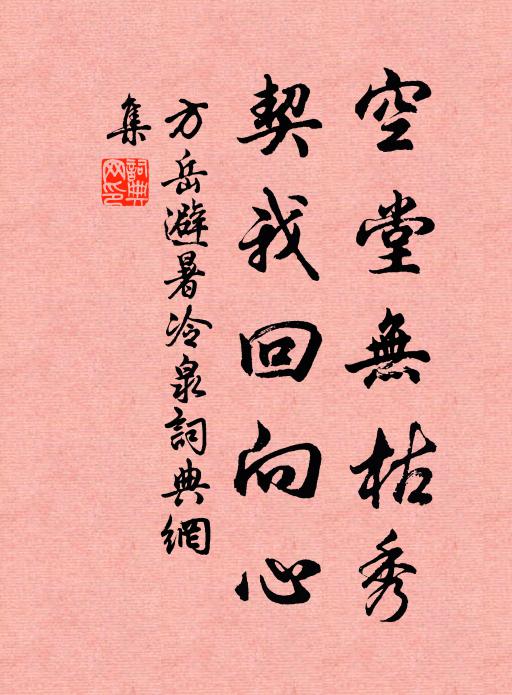 空堂無枯秀
契我回向心
方岳避暑冷泉詞典網
集
詞典網印